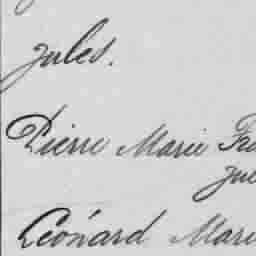 Jules.
Pierre Marie
Léonard Marie